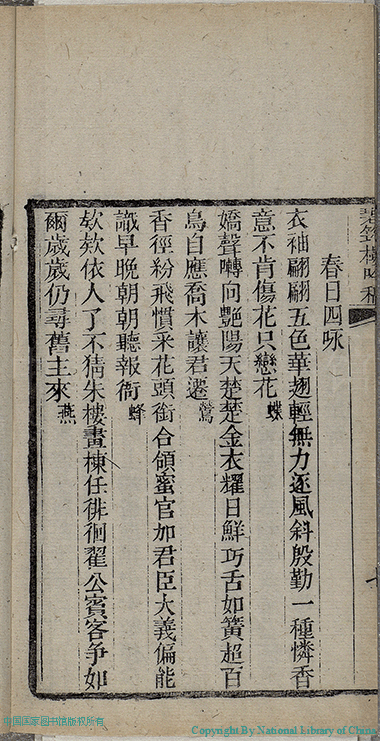 春日四咏
衣袖翩翩五色華翅輕無力逐風斜殷勤一種憐香
意不肯傷花只戀花蝶
嬌聲囀向艷陽天楚楚金衣耀日鮮巧舌如簧超百
鳥自應喬木讓君遷鶯
香徑粉飛慣采花頭銜合領蜜官加君臣大義偏能
識早晚朝朝聽報衙蜂
欸欸依人了不猜朱樓畫棟任徘徊翟公賓客爭如
爾歲歲仍尋舊主來燕
中国国家图书馆版权所有
Copyright By National Library of China